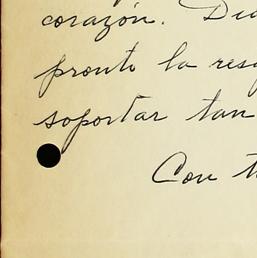 corazón. Dio
pronto la resp
soportar tan
Con t